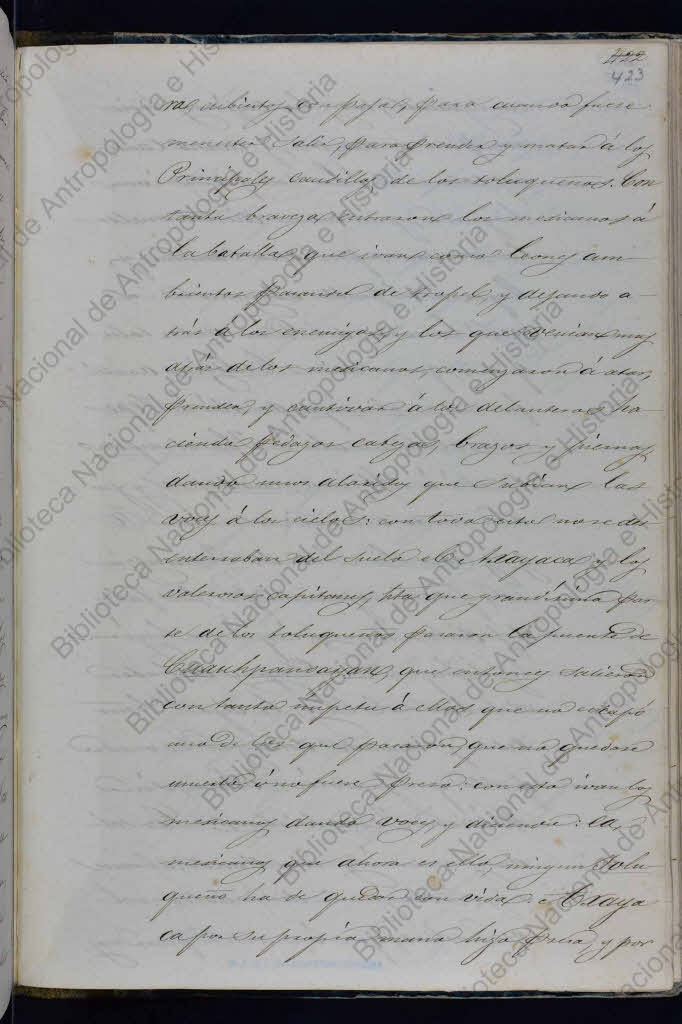 422
423
ra, cubiertos con paja, para cuando fuese
menester salir, para prender y matar á los
Principales caudillos de los toluqueños. Con
tanta braveza entraron los mexicanos á
la batalla, que ivan como leones am-
brientos pasando de tropel, y dejando a-
trás á los enemigos, y los que venian muy
atrás de los mexicanos, comenzaron á atar,
prender, y cautivar á los delanteros, ha-
ciendo pedazos cabezas, brazos y piernas,
dando unos alaridos que subian las
voces á los cielos: con todo esto no se des-
enterraban del suelo el Axayaca y los
valerosos capitanes, hta que grandisima par-
te de los toluqueños pasaron la puente de
Cuauhpanoayan, que entonces salieron
con tanto impetu á ellos, que no escapó
uno de los que pasaron, que no quedase
muerto ó no fuese preso: con esto ivan los
mexicanos dando voces, y diciendo: ea,
mexicanos que ahora es ello, ningun tolu-
queño ha de quedar con vida. Axaya
ca por su propia mano hizo presa, y por
Biblioteca Nacional de Antropología e Historia